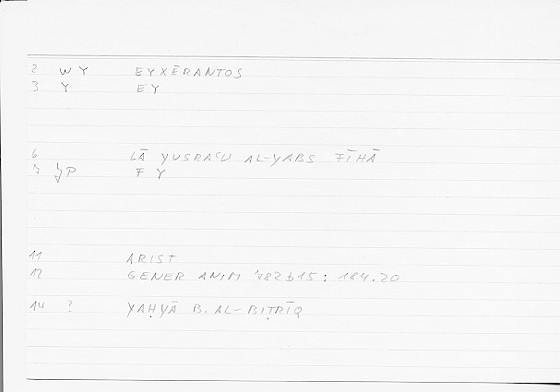 2 W Y EYXĒRANTOS
3 Y EY
6 LĀ YUSRAʿU AL-YABS FĪHĀ
7 F Y
11 ARIST
12 GENER ANIM 782b15 : 184.20
14 ? YAḤYĀ B. AL-BIṬRĪQ